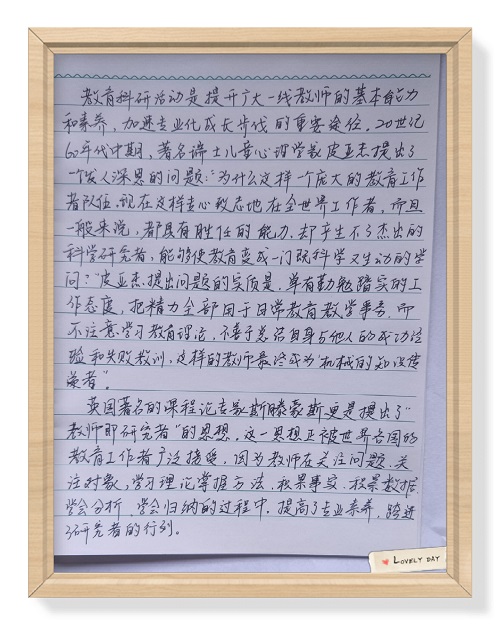 教育科研活动是提升广大一线教师的基本能力
和素养，加速专业化成长步伐的重要途径。20世纪
60年代中期，著名瑞士儿童心理学家皮亚杰提出了
一个发人深思的问题：“为什么这样一个庞大的教育工作
者队伍，现在这样专心致志地在全世界工作着，而且
一般来说，都具有胜任的能力，却产生不了杰出的
科学研究者，能够使教育变成一门既科学又生动的学
问？”皮亚杰提出问题的实质是，单有勤勉踏实的工
作态度，把精力全部用于日常教育教学事务，而
不注意学习教育理论，不善于总结自身与他人的成功经
验和失败教训，这样的教师最终成为“机械的知识传
递者”。
英国著名的课程论专家斯滕豪斯更是提出了“
教师即研究者”的思想，这一思想正被世界各国的
教育工作者广泛接受，因为教师在关注问题、关
注对象，学习理论掌握方法、积累事实、积累数据，
学会分析、学会归纳的过程中，提高了专业素养，跨进
了研究者的行列。
LOVELY DAY